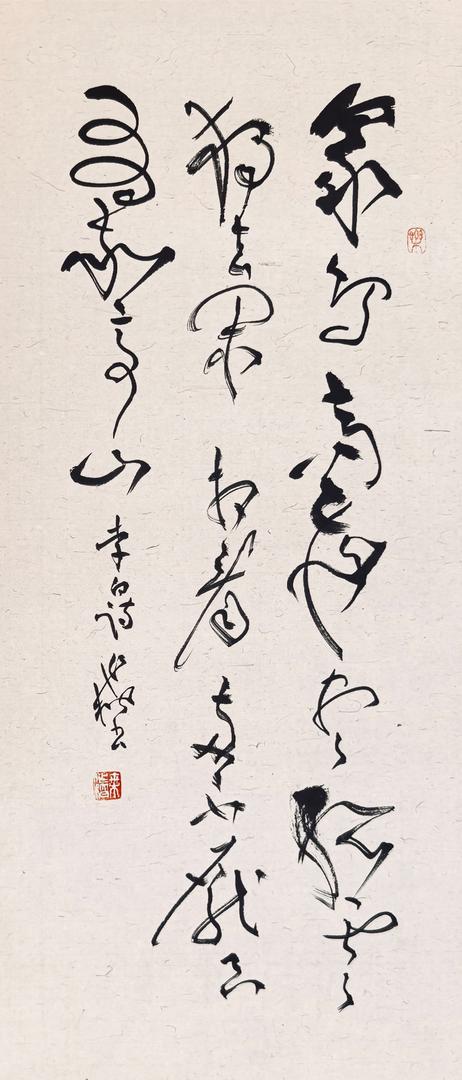 眾鳥高飛盡孤雲
獨去閑相看兩不厭只
有敬亭山李白詩書